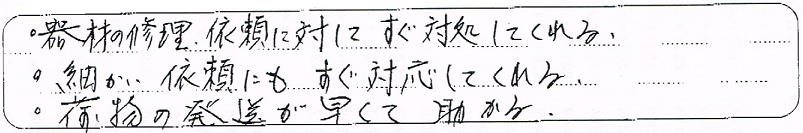 ・器材の修理、依頼に対してすぐ対処してくれる、
・細かい依頼にもすぐ対応してくれる、
・荷物の発送が早くて助かる．